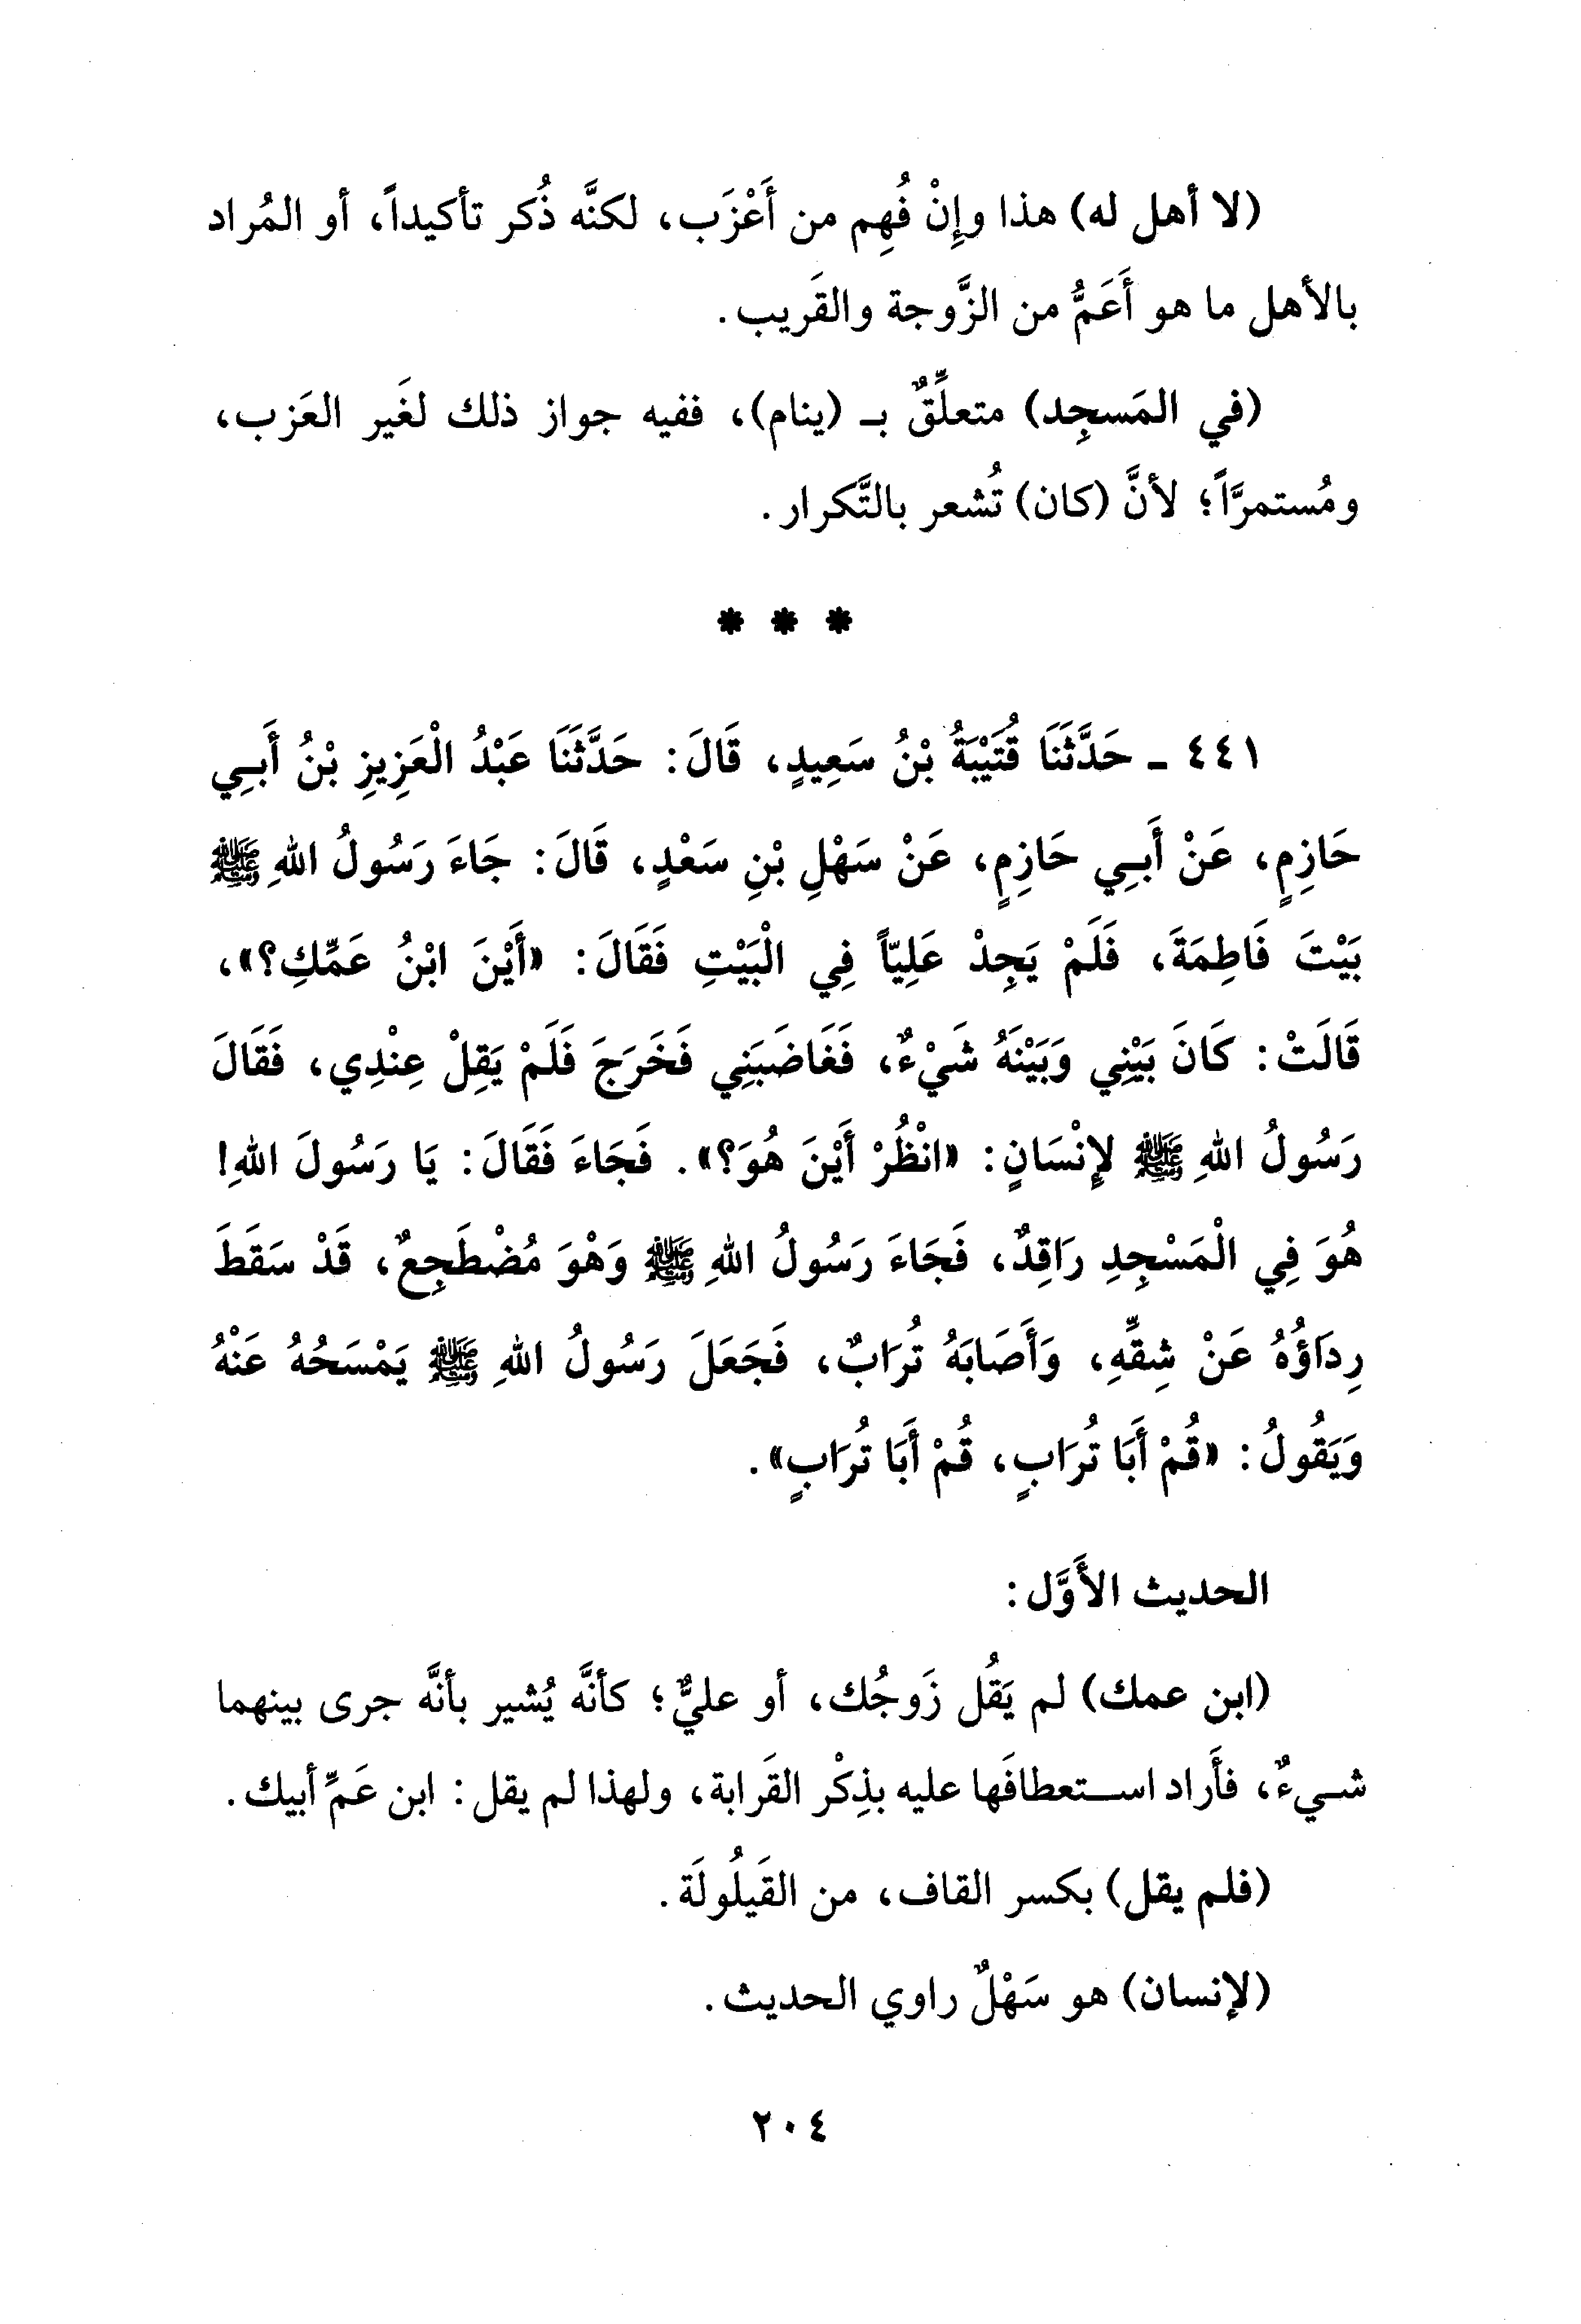 (لا أهل له) هذا وإِنْ فُهِم من أَعْزَب، لكنَّه ذُكر تأكيداً، أو المُراد
بالأهل ما هو أَعَمُّ من الزَّوجة والقَريب.
(في المَسجِد) متعلِّقٌ بـ (ينام)، ففيه جواز ذلك لغَير العَزب،
ومُستمرَّاً؛ لأنَّ (كان) تُشعر بالتَّكرار.
* * *
٤٤١ - حَدَّثَنَا قُتَيْبَةُ بْنُ سَعِيدٍ، قَالَ: حَدَّثَنَا عَبْدُ الْعَزِيزِ بْنُ أَبِي
حَازِمٍ، عَنْ أَبِي حَازِمٍ، عَنْ سَهْلِ بْنِ سَعْدٍ، قَالَ: جَاءَ رَسُولُ اللهِ ﷺ
بَيْتَ فَاطِمَةَ، فَلَمْ يَجِدْ عَلِيّاً فِي الْبَيْتِ فَقَالَ: «أَيْنَ ابْنُ عَمِّكِ؟»،
قَالَتْ: كَانَ بَيْنِي وَبَيْنَهُ شَيْءٌ، فَغَاضَبَنِي فَخَرَجَ فَلَمْ يَقِلْ عِنْدِي، فَقَالَ
رَسُولُ اللهِ ﷺ لإِنْسَانٍ: «انْظُرْ أَيْنَ هُوَ؟». فَجَاءَ فَقَالَ: يَا رَسُولَ اللهِ!
هُوَ فِي الْمَسْجِدِ رَاقِدٌ، فَجَاءَ رَسُولُ اللهِ ﷺ وَهْوَ مُضْطَجِعٌ، قَدْ سَقَطَ
رِدَاؤُهُ عَنْ شِقِّهِ، وَأَصَابَهُ تُرَابٌ، فَجَعَلَ رَسُولُ اللهِ ﷺ يَمْسَحُهُ عَنْهُ
وَيَقُولُ: «قُمْ أَبَا تُرَابٍ، قُمْ أَبَا تُرَابٍ».
الحديث الأَوَّل:
(ابن عمك) لم يَقُل زَوجُك، أو عليٌّ؛ كأنَّه يُشير بأنَّه جرى بينهما
شيءٌ، فأَراد استعطافَها عليه بذِكْر القَرابة، ولهذا لم يقل: ابن عَمِّ أبيك.
(فلم يقل) بكسر القاف، من القَيلُولَة.
(لإنسان) هو سَهْلٌ راوي الحديث.
٢٠٤